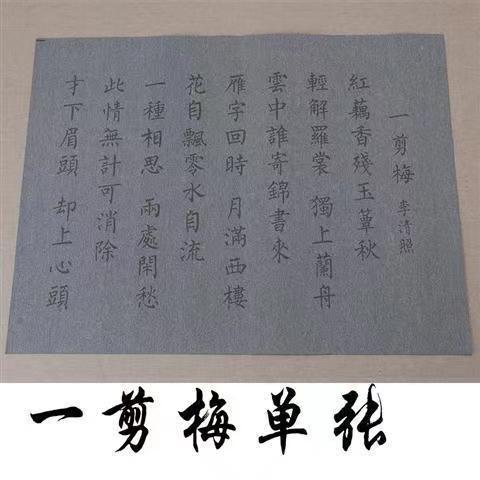 一剪梅 李清照
紅藕香殘玉蕈秋
輕解羅裳 獨上蘭舟
雲中誰寄錦書來
雁字回時 月滿西樓
花自飄零水自流
一種相思 兩處閑愁
此情無計可消除
才下眉頭 却上心頭
一剪梅单张